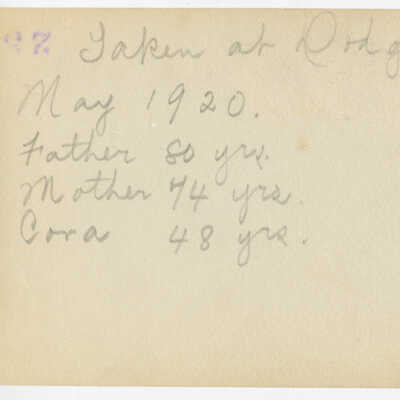 Taken at Dodg
May 1920.
Father 80 yrs.
Mother 74 yrs.
Cora 48 yrs.